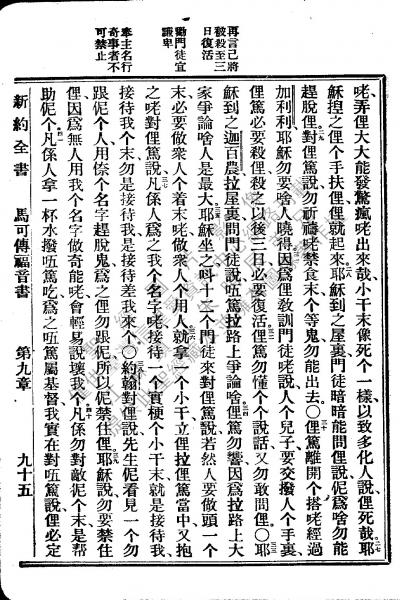 再言己將
被殺至三
日復活
勸門徒宜
謙卑
奉主名行
奇事者不
可禁止
咾弄俚大大能發驚瘋咾出來哉小干末像死个一樣以致多化人說俚死哉耶
穌揑之俚个手扶俚俚就起來耶穌到之屋裏門徒暗暗能問俚說伲爲啥勿能
趕脫俚對俚篤說勿祈禱咾禁食末个等鬼勿能出去○俚篤離開个搭咾經過
加利利耶穌勿要啥人曉得因爲俚敎訓門徒咾說人个兒子要交撥人个手裏
俚篤必要殺俚殺之以後三日必要復活俚篤勿懂个个說話又勿敢問俚○耶
穌到之迦百農拉屋裏問門徒說㑚篤拉路上爭論啥俚篤勿響因爲拉路上大
家爭論啥人是最大耶穌坐之呌十二个門徒來對俚篤說若然人要做頭一个
末必要做衆人个着末咾做衆人个用人就拿一个小干立俚拉俚篤當中又抱
之咾對俚篤說凡係人爲之我个名字咾接待一个實梗个小干末就是接待我
接待我个末勿是接待我是接待差我來个○約翰對俚篤說先生伲看見一个勿
跟伲个人用倷个名字趕脫鬼爲之俚勿跟伲所以伲禁住俚耶穌說勿要禁住
俚因爲無人用我个名字做奇能咾會輕易說壞我个凡係勿對敵伲个末是幫
助伲个凡係人拿一杯水撥㑚篤吃爲之㑚篤屬基督我實在對㑚篤說俚必定
新約全書 馬可傳福音書 第九章 九十五